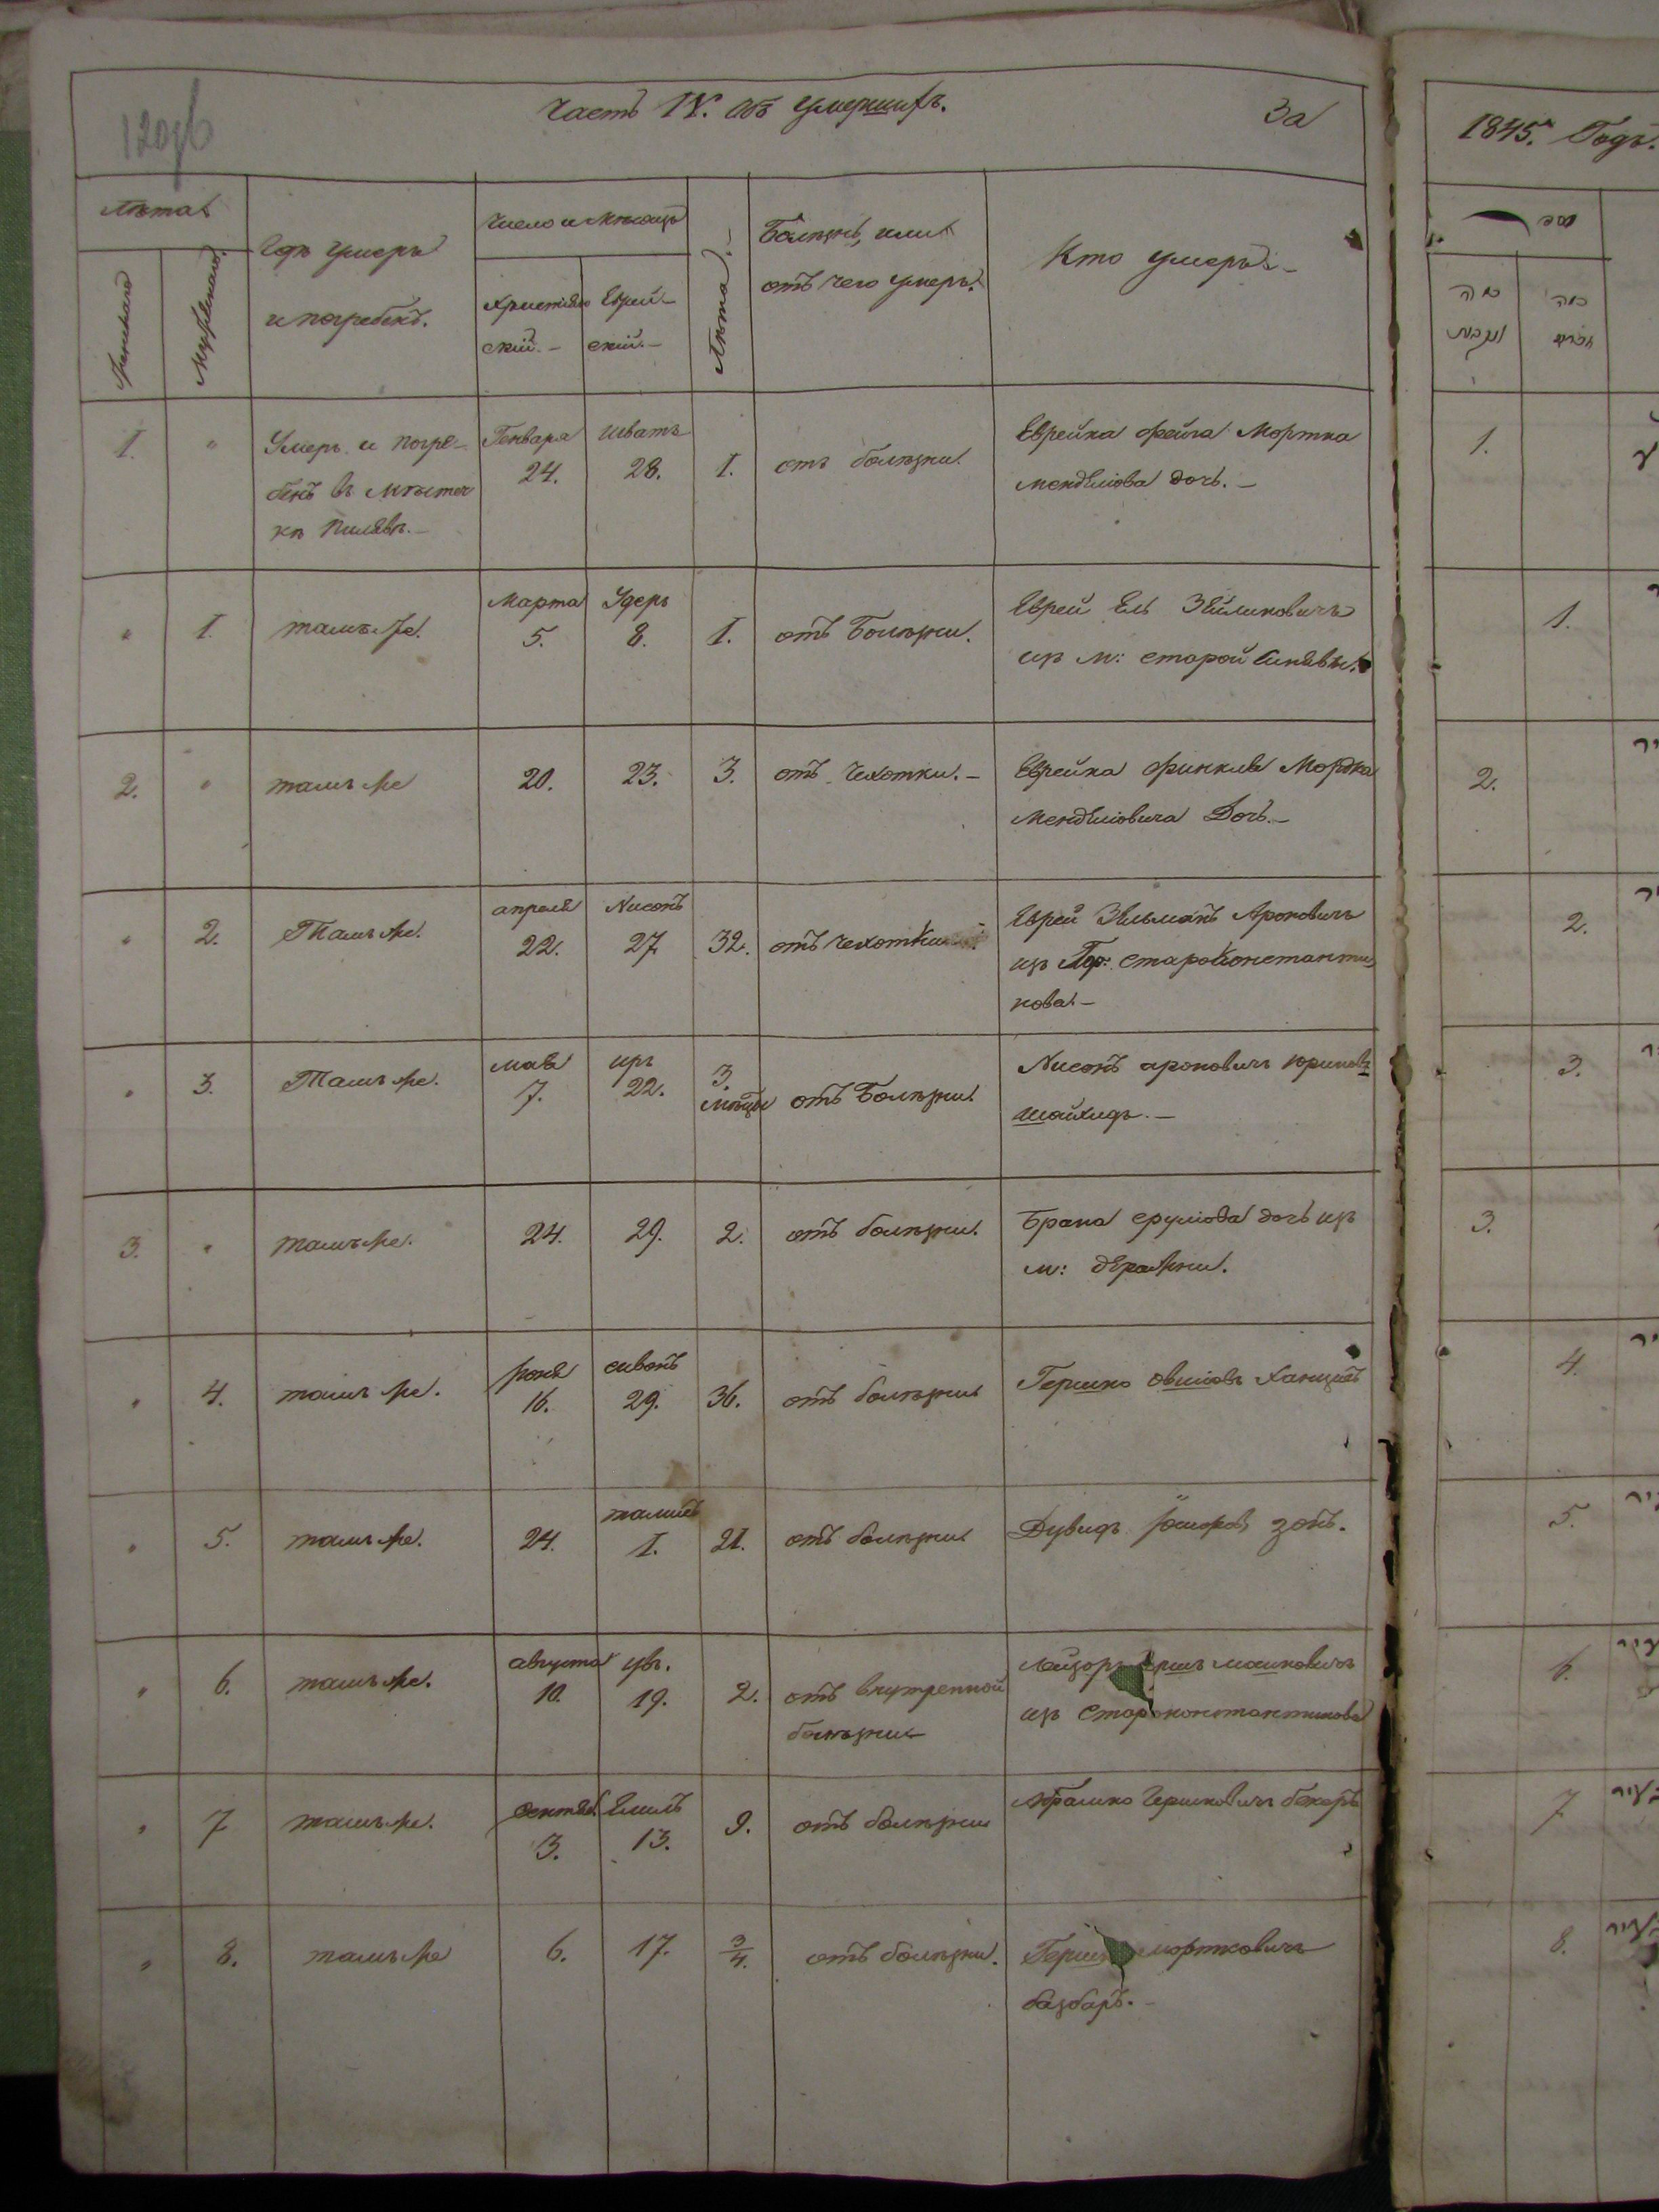 120об
Часть IV. Объ умершихъ. За
1845.го Годъ.
Лѣта
Женскаго
Мужескаго
Гдѣ умеръ
и погребенъ.
Число и мѣсяцъ
Христіян
скій. –
Еврей –
скій. –
Лѣта. –
Болѣзнь, или
отъ чего умеръ.
Кто умеръ. –
1. " Умеръ и погре–
бенъ въ мѣстеч
кѣ Пилявѣ. –
Генваря 24. Шватъ 28. 1. отъ болѣзни.
Еврейка Фейга Мортка
Менделіова дочь. –
" 1. тамъ же. Марта 5. Удеръ 8. 1. отъ Болѣзни.
Еврей Ель Зейликовичъ
изъ м: старой Синявы.
2. " тамъ же 20. 23. 3. отъ Чехотки. –
Еврейка Финкля Мордка
Менделіовича Дочь. –
" 2. Тамъ же. апреля 22. Нисонъ 27 32. отъ чехотки
Еврей Зельманъ Ароновичъ
изъ Гор: староконстанти
нова. –
" 3. Тамъ же. мая 7. иръ 22. 3. мѣсцы отъ Болѣзни.
Нисонъ ароновичъ
шойхидъ. –
3. " тамъ же. 24. 29. 2. отъ болѣзни.
Брана сруліова дочь изъ
м: деражни.
" 4. тамъ же. юня 16. сивонъ 29. 36. отъ болѣзни
Гершко овшіовъ
" 5. тамъ же. 24. тамизъ 1. 21. отъ болѣзни
Дувидъ зонъ.
" 6. тамъ же. августа 10. увъ. 19. 2. отъ внутренной
болѣзни
Лейзоръ
изъ Староконстантинова
" 7 тамъ же. сентяб. 3. Елилъ 13. 9. отъ болѣзни
Абрамко Гершковичъ бекеръ
" 8. тамъ же 6. 17. 3/4. отъ болѣзни.
Гершко мортковичъ
базбаръ. –
1.
1.
2.
2.
3.
3.
4.
5.
6.
7
8.